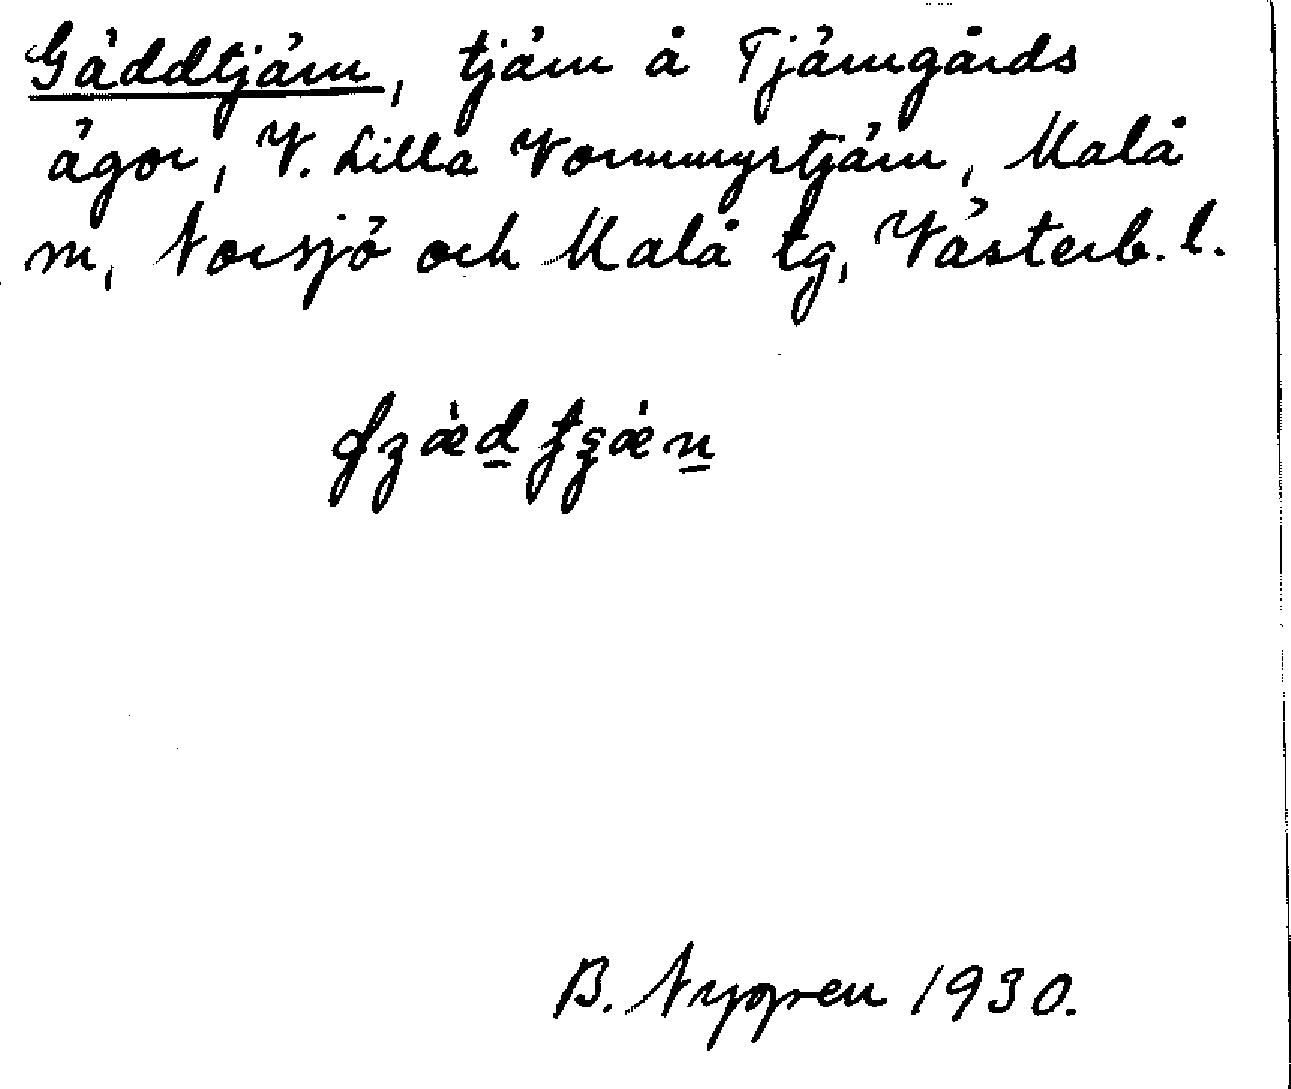 Gäddtjärn, tjärn å Tjärngårds
ägor, V. Lilla Vormmyrstjärn, Malå
sn, Norsjö och Malå tg, Västerb. l.
B. Nygren 1930.